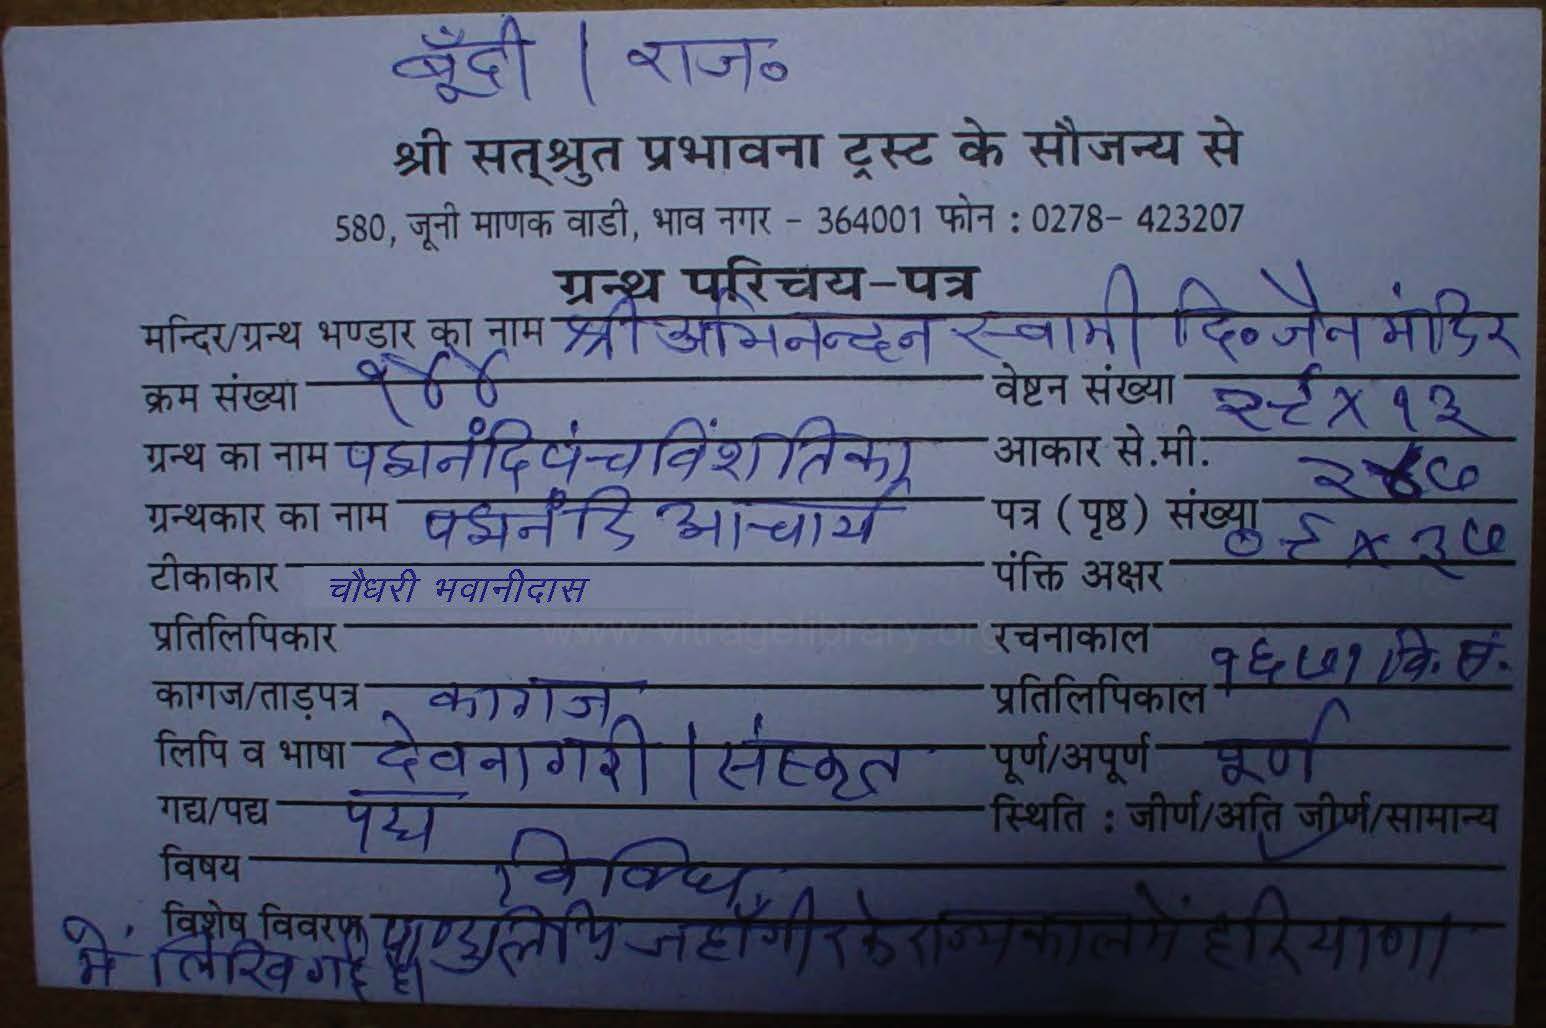 बूँदी | राज॰
श्री सत्श्रुत प्रभावना ट्रस्ट के सौजन्य से
580, जूनी माणक वाडी, भाव नगर - 364001 फोन : 0278- 423207
ग्रन्थ परिचय-पत्र
मन्दिर/ग्रन्थ भण्डार का नाम श्री अभिनन्दन स्वामी दि॰ जैन मंदिर
क्रम संख्या १४४ वेष्टन संख्या
ग्रन्थ का नाम पद्मनंदिपंचविंशतिका आकार से.मी. २९ x १३
ग्रन्थकार का नाम पद्मनंदि आचार्य पत्र (पृष्ठ) संख्या
टीकाकार चौधरी भवानीदास पंक्ति अक्षर ९ x ३७
प्रतिलिपिकार रचनाकाल
www.vitragelibrary.org
कागज/ताड़पत्र कागज प्रतिलिपिकाल १६७१ वि. सं.
लिपि व भाषा देवनागरी | संस्कृत पूर्ण/अपूर्ण पूर्ण
गद्य/पद्य पद्य स्थिति : जीर्ण/अति जीर्ण/सामान्य
विषय विविध
विशेष विवरण पाण्डुलिपि जहाँगीर के राज्यकाल में हरियाणा
में लिखि गई है।